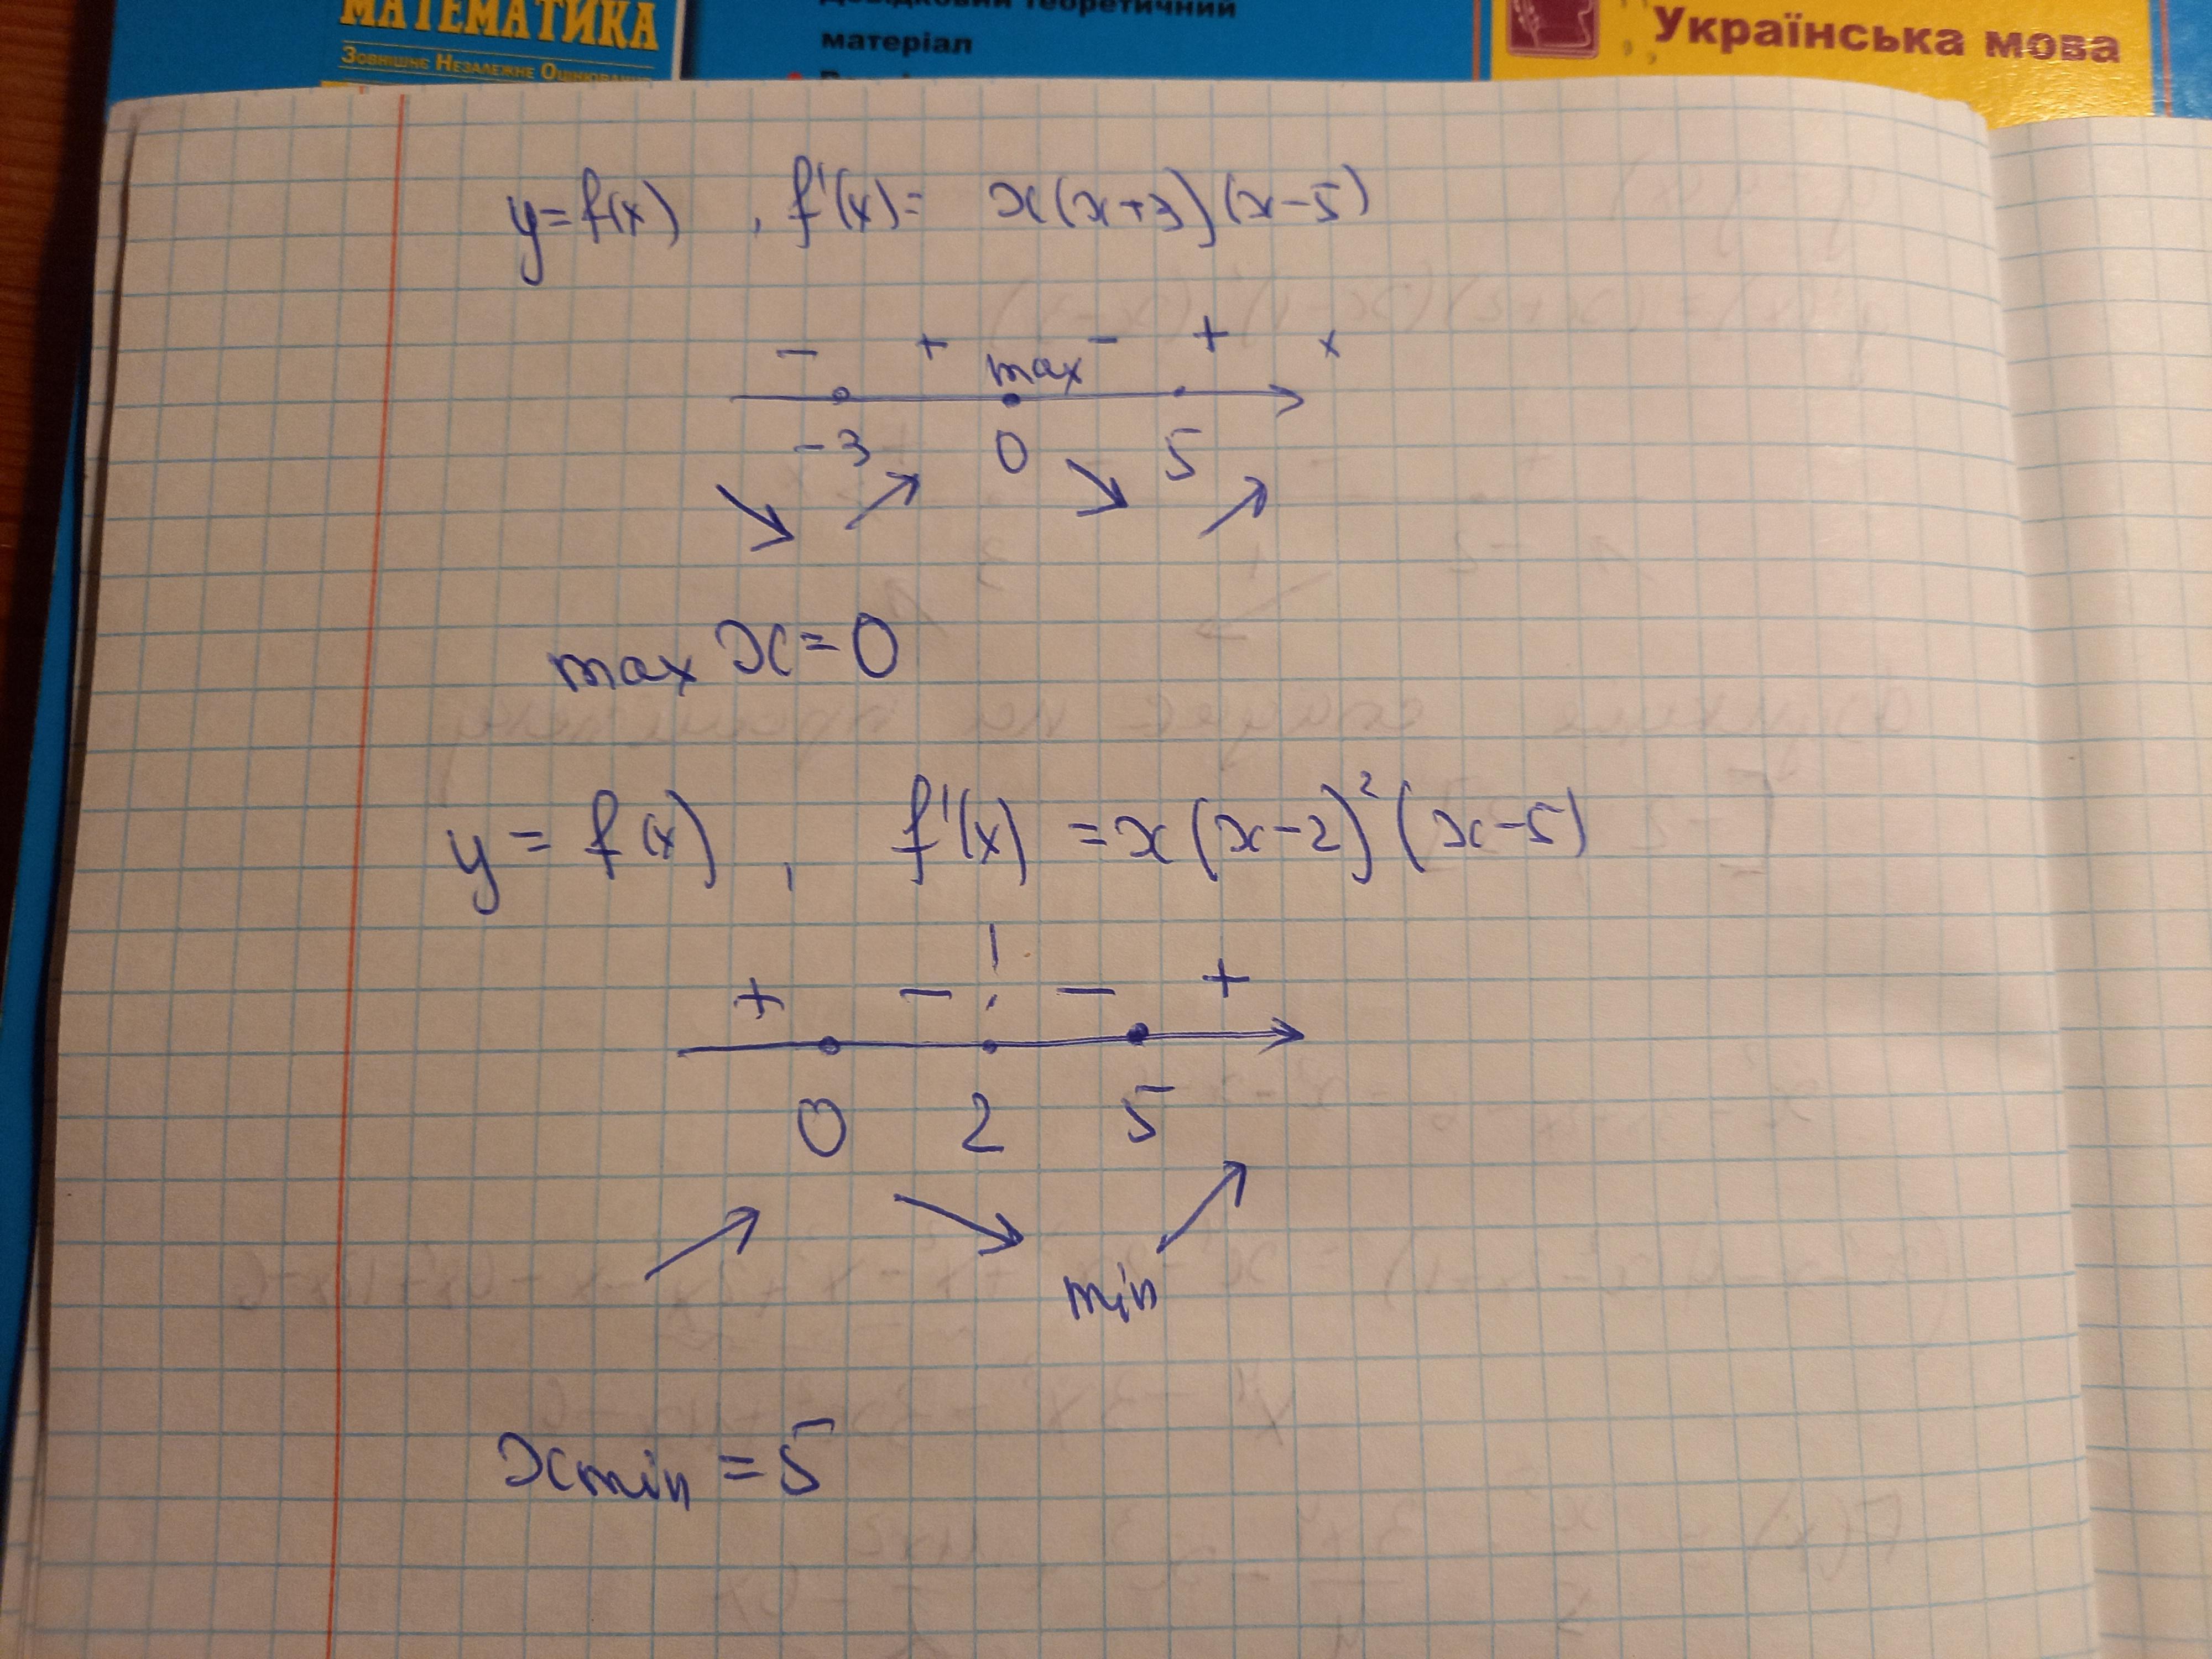 МАТЕМАТИКА
Зовнішнє Незалежне Оцінювання
теоретичний
матеріал
Українська мова
y=f(x) , f'(x)= x(x+3)(x-5)
- + max - + x
-3 0 5
max x=0
y = f(x) , f'(x) = x(x-2)²(x-5)
+ - ! - +
0 2 5
min
xmin = 5